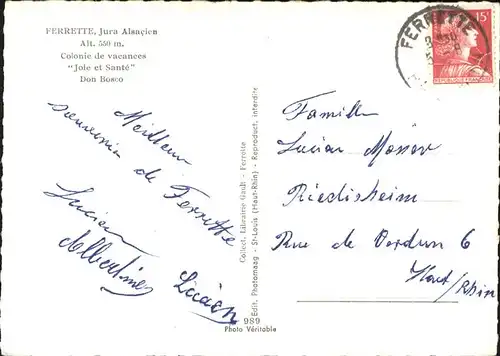 FERRETTE, Jura Alsacien
Alt. 550 m.
Colonie de vacances
"Joie et Santé"
Don Bosco
Meilleur
souvenir de Ferrette
Lucien
Albertine
Lucien
Collect. Librairie Gaub - Ferrette
Edit. Photomaag - St-Louis (Haut-Rhin) - Reproduct. interdite
989
Photo Véritable
FERRETTE
15F
REPUBLIQUE FRANÇAISE
Famille
Lucien
Riedisheim
Rue de Verdun 6
Haut/Rhin